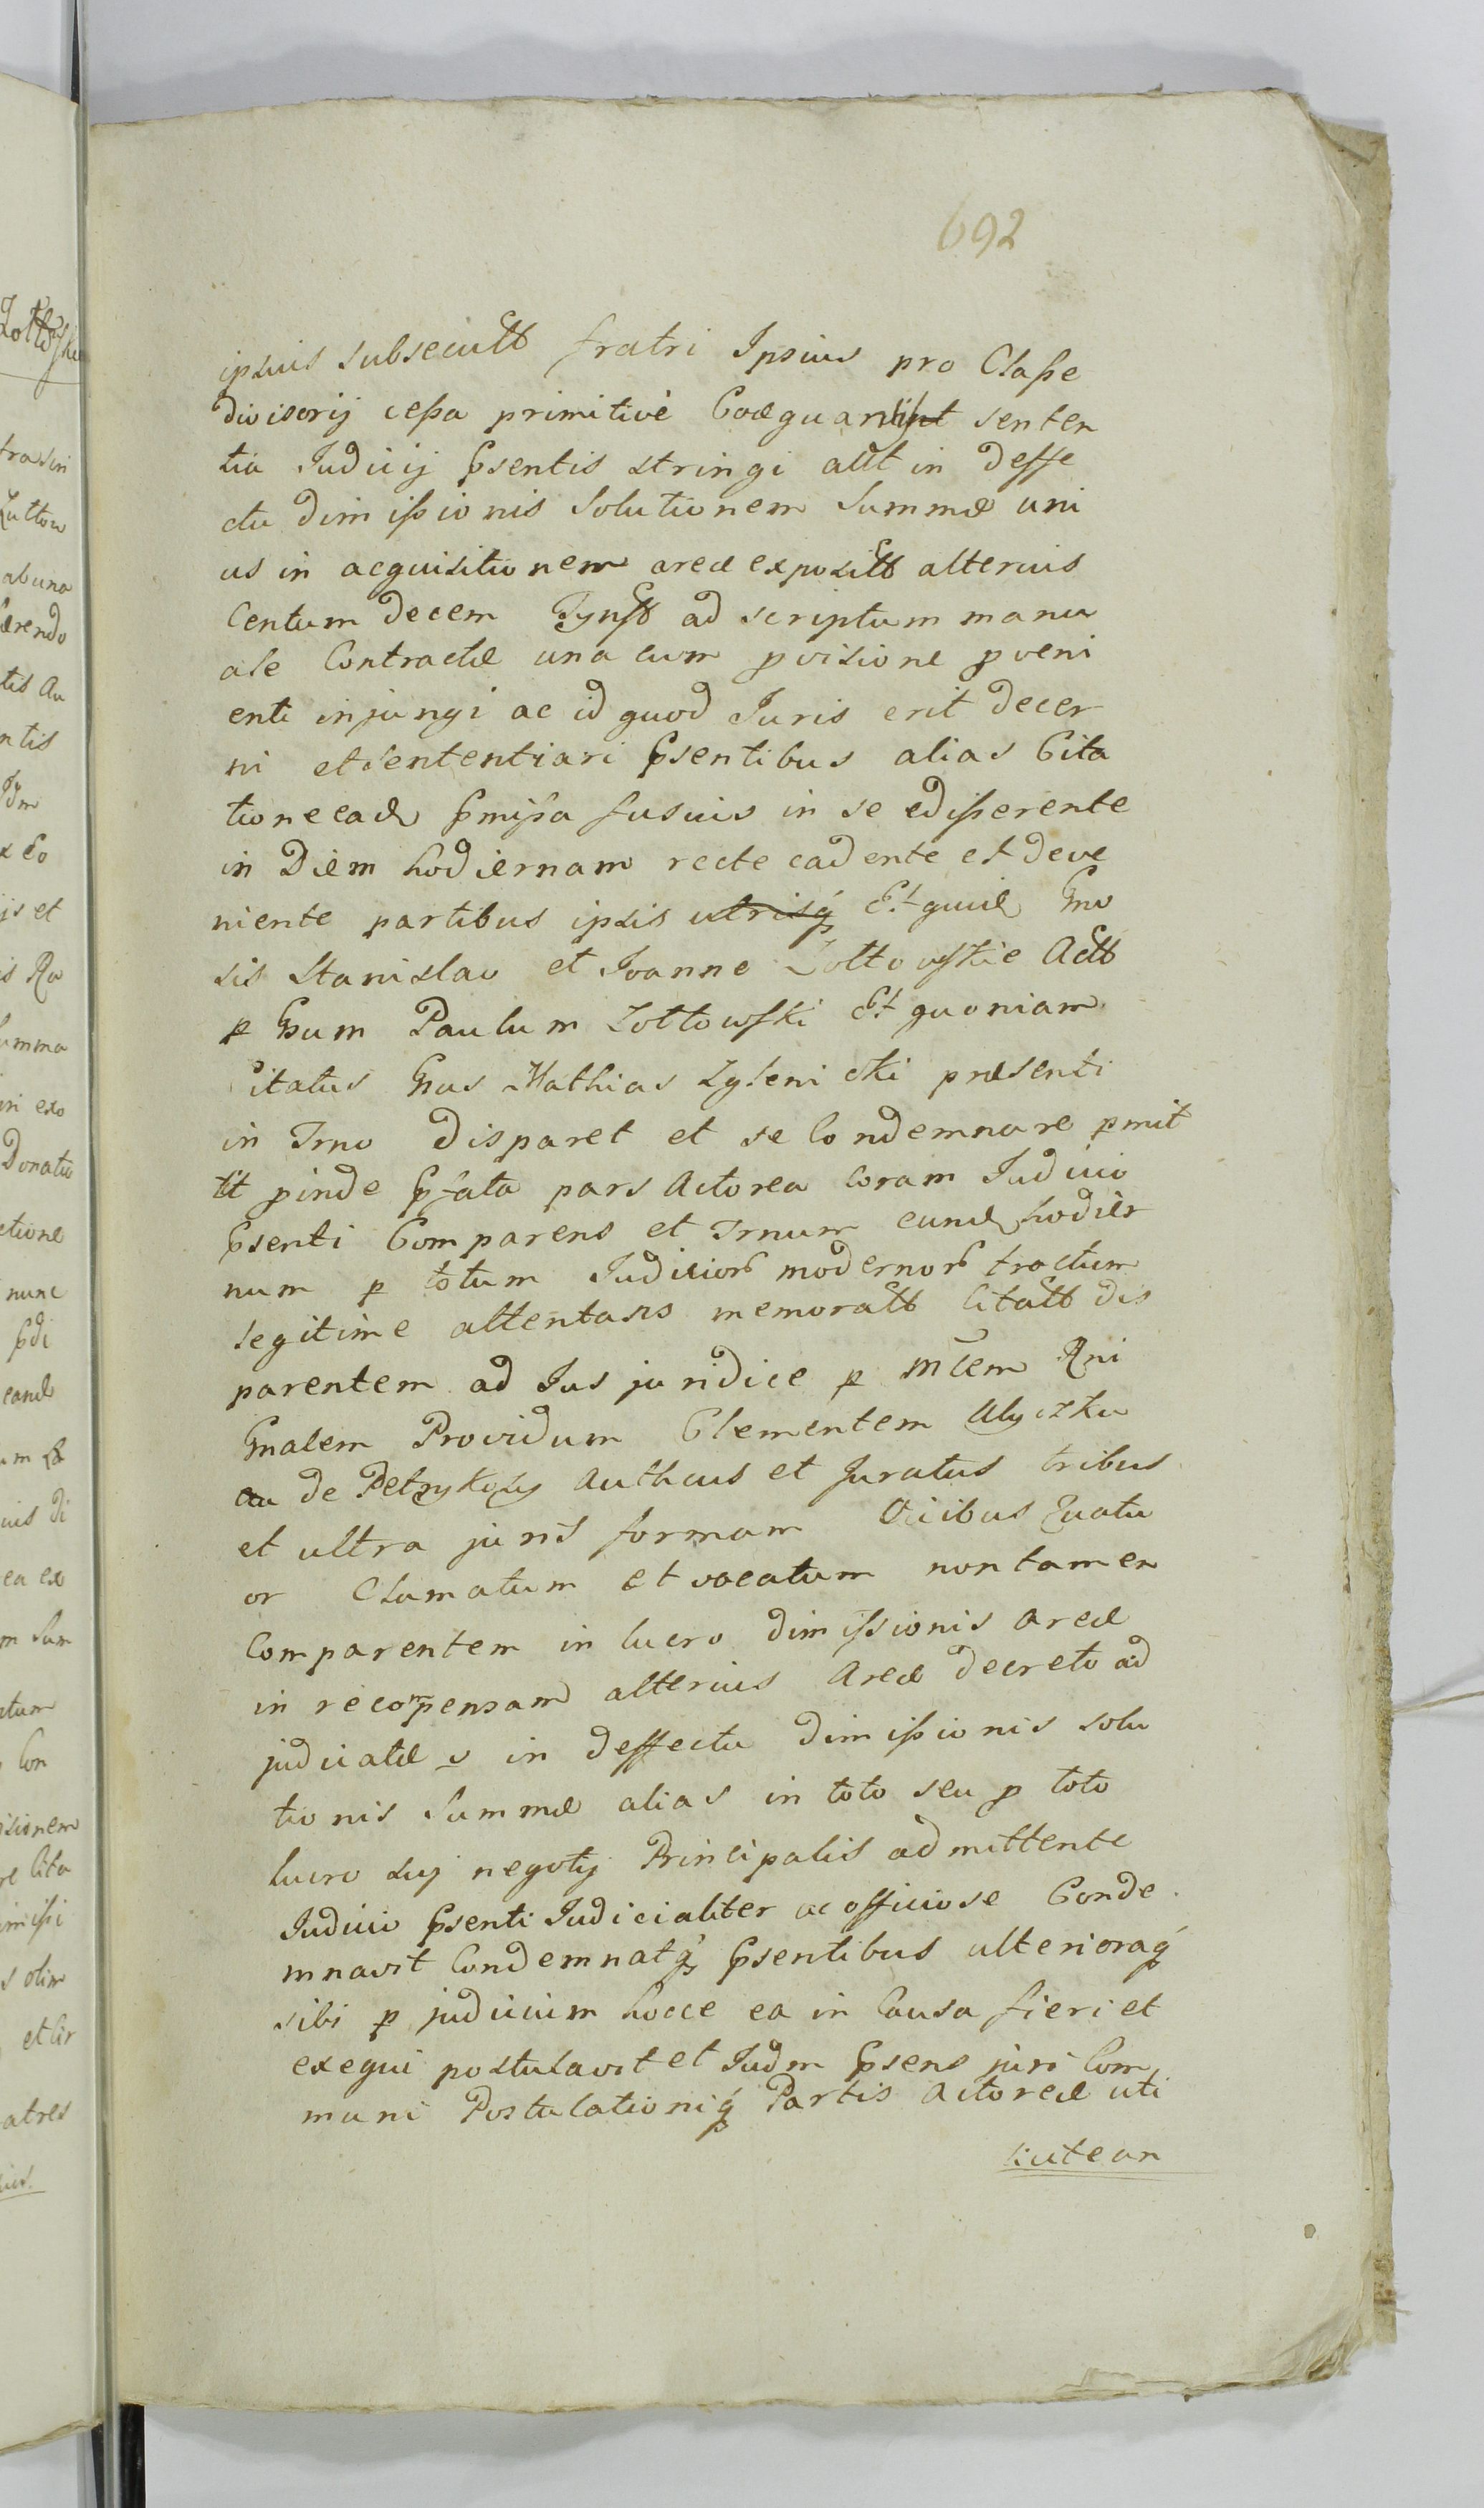 692
ipsius subsecutt fratri Ipsius pro Classe
divisorij cessa primitive Coæquari senten
tia Iudicij Psentis stringi autt in deffe
ctu dimissionis Solutionem Summæ uni
us in acquisitionem areæ expositt alterius
Centum decem Tynff ad scriptum manu
ale Contractæ una cum pvisione pveni
enti injungi ac id quod Iuris erit decer
ni et sententiari Psentibus alias Cita
tione ead Pmissa fusius in se edisserente
in Diem hodiernam recte cadente et deve
niente partibus ipsis utrisq Et quid Gno
sis Stanislao et Ioanne Zołtowskie Actt
p Gnum Paulum Zołtowski Et quoniam
Citatus Gnus Mathias Zglenicki præsenti
in Trno disparet et se Condemnare pmit
tit pinde Pfata pars Actorea Coram Iudicio
Psenti Comparens et Trnum eund hodier
num p totum Iudicior modernor tractum
legitime attentans memoratt Citatt dis
parentem ad Ius juridice p Mtem Rni
Gnalem Providum Clementem
de Petrykozy Authcus et Juratus tribus
et ultra juris formam Vicibus Quatu
or Clamatum et vocatum non tamen
Comparentem in lucro dimissionis areæ
in recompensam alterius Areæ decreto ad
judicatæ s in deffectu dimissionis solu
tionis Summæ alias in toto seu p toto
lucro suj negotij Principalis admittente
Iudicio Psenti Iudicialiter ac officiose Conde
mnavit Condemnatq Psentibus ulterioraq
sibi p judicium hocce ea in Causa fieri et
exequi postulavit et Iudm Psens juri Com
muni Postulationiq Partis Actoreæ uti